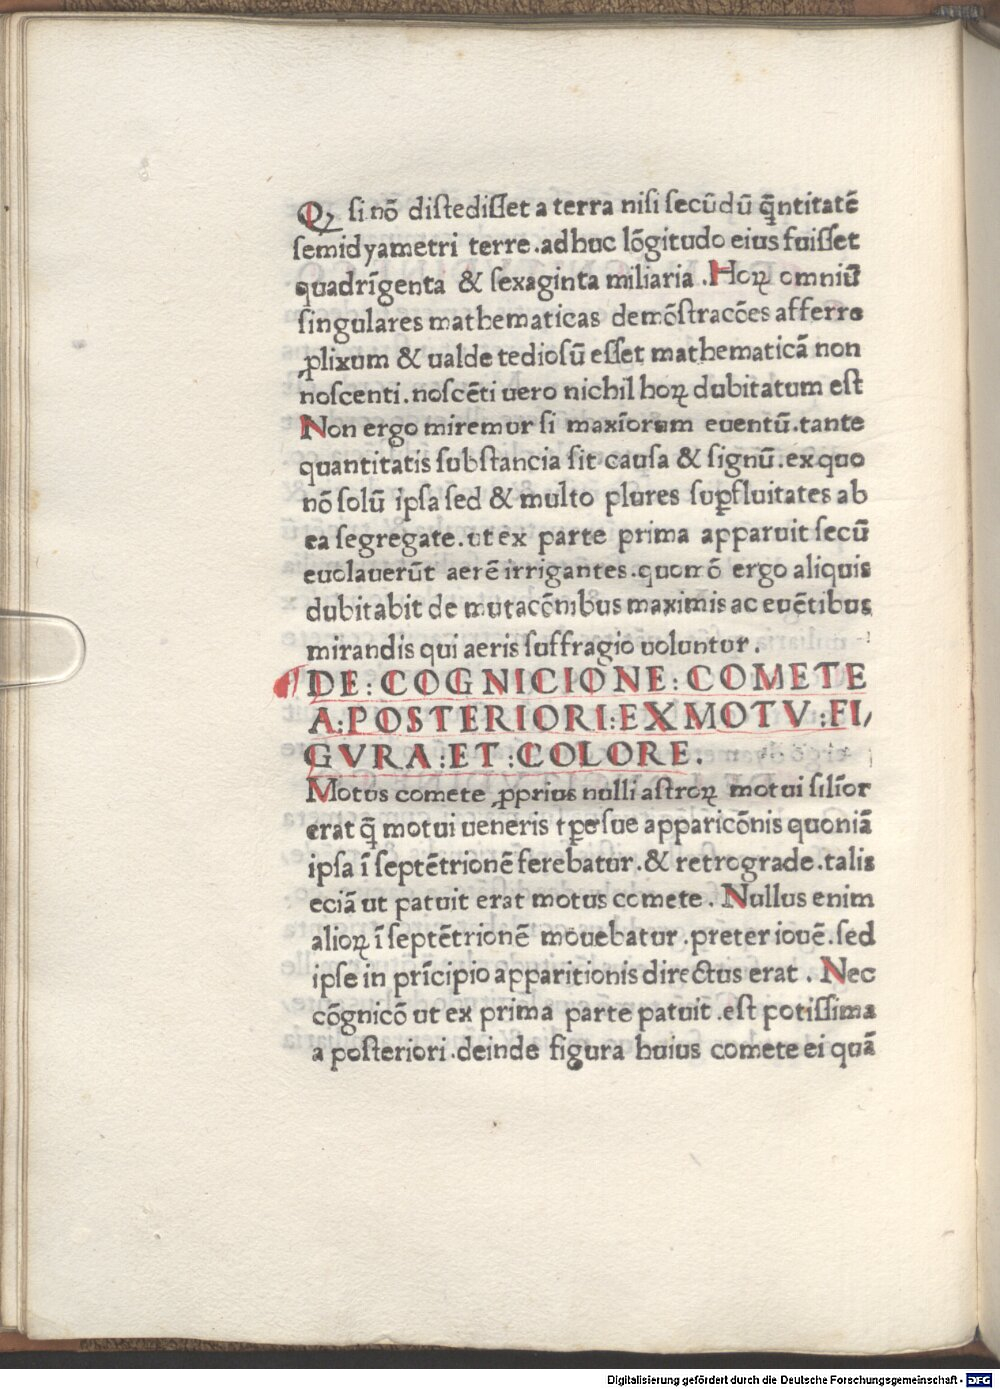 Qꝫ si nō distedisset a terra nisi secūdū q̄ntitatē
semidyametri terre.adhuc lōgitudo eius fuisset
quadrīgenta & sexaginta miliaria .Hoꝝ omniū
singulares mathematicas demōstracōes afferre
ꝓlixum & ualde tediosū esset mathematicā non
noscenti.noscēti uero nichil hoꝝ dubitatum est
Non ergo miremur si maxīorum euentū.tante
quantitatis substancia sit causa & signū.ex quo
nō solū ipsa sed & multo plures suꝑfluitates ab
ea segregate.ut ex parte prima apparuit secū
euolauerūt aerē irrigantes.quomō ergo aliquis
dubitabit de mutacōnibus maximis ac euētibus
mirandis qui aeris suffragio uoluntur.
DE:COGNICIONE:COMETE
A:POSTERIORI:EX MOTV:FI/
GVRA:ET:COLORE.
Motus comete ꝓprius nulli astroꝝ motui silīor
erat q̄ motui ueneris tꝑe sue apparicōnis quoniā
ipsa ī septētrionē ferebatur.& retrograde.talis
eciā ut patuit erat motus comete. Nullus enim
alioꝝ ī septētrionē mouebatur.preter iouē.sed
ipse in prīcipio apparitionis directus erat. Nec
cōgnicō ut ex prima parte patuit.est potissima
a posteriori.deinde figura huius comete ei quā
Digitalisierung gefördert durch die Deutsche Forschungsgemeinschaft - DFG